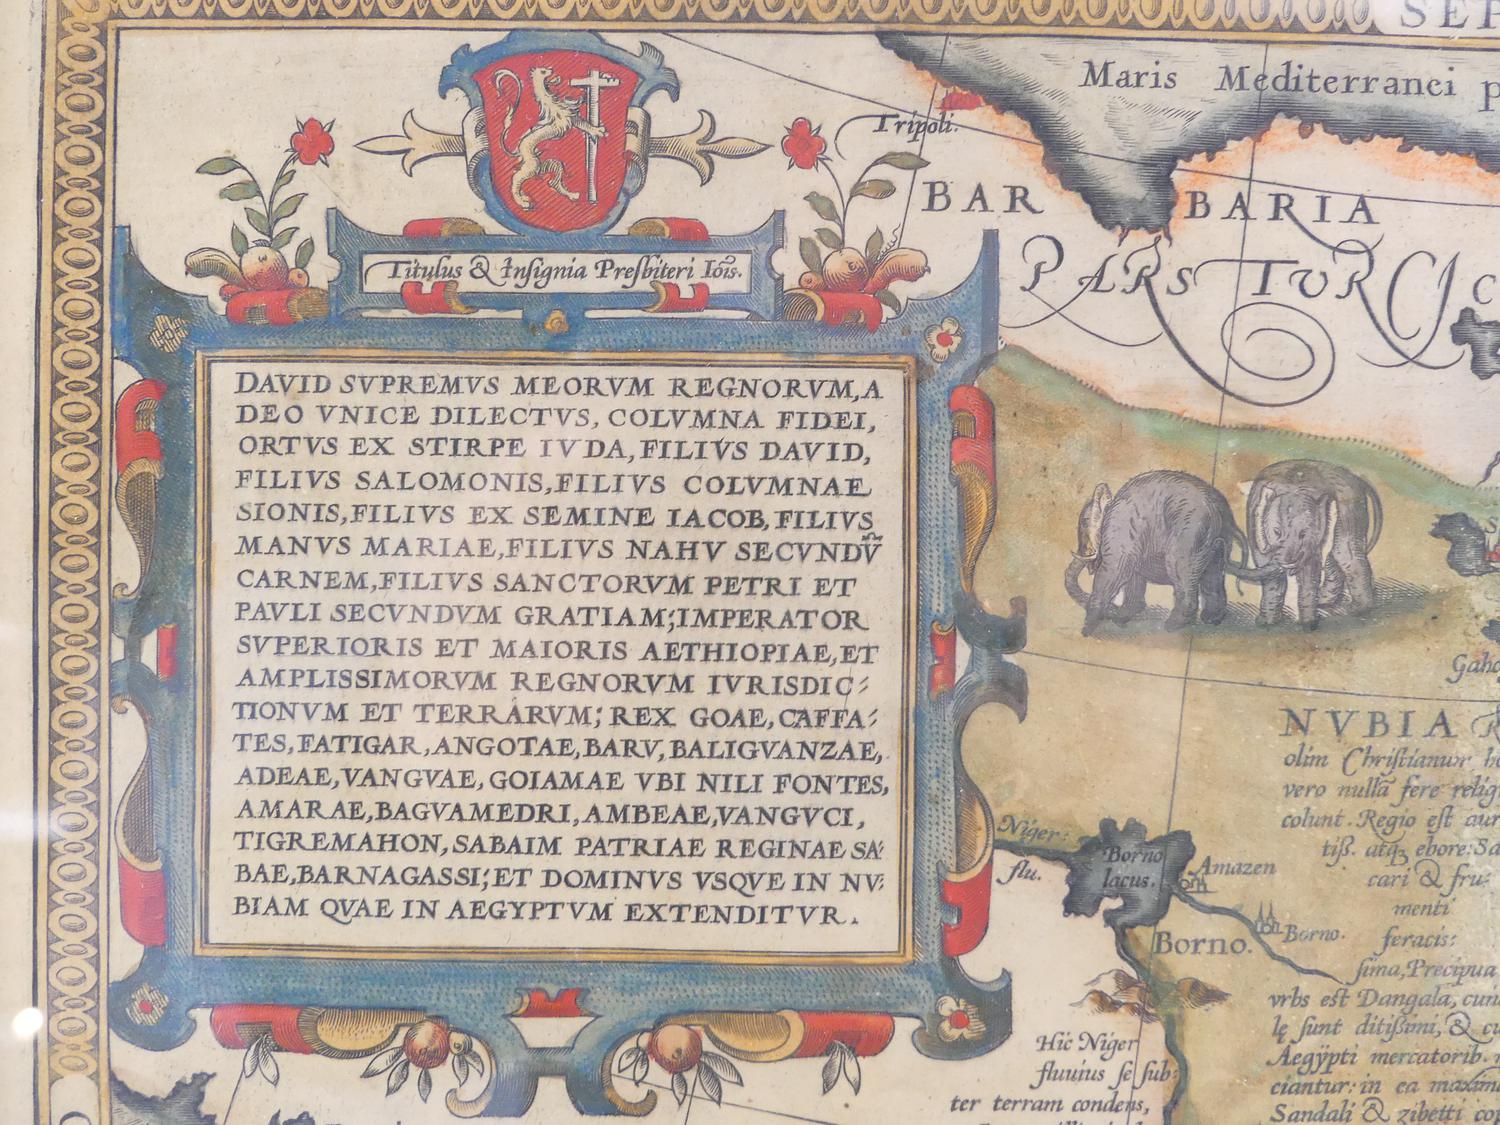 SEP
Maris Mediterranei p
Tripoli.
BARBARIA
PARS TVRCIC
Titulus & Insignia Presbiteri Iõis.
DAVID SVPREMVS MEORVM REGNORVM, A
DEO VNICE DILECTVS, COLVMNA FIDEI,
ORTVS EX STIRPE IVDA, FILIVS DAVID,
FILIVS SALOMONIS, FILIVS COLVMNAE
SIONIS, FILIVS EX SEMINE IACOB, FILIVS
MANVS MARIAE, FILIVS NAHV SECVNDV̄
CARNEM, FILIVS SANCTORVM PETRI ET
PAVLI SECVNDVM GRATIAM; IMPERATOR
SVPERIORIS ET MAIORIS AETHIOPIAE, ET
AMPLISSIMORVM REGNORVM IVRISDIC:
TIONVM ET TERRARVM; REX GOAE, CAFFA:
TES, FATIGAR, ANGOTAE, BARV, BALIGVANZAE,
ADEAE, VANGVAE, GOIAMAE VBI NILI FONTES,
AMARAE, BAGVAMEDRI, AMBEAE, VANGVCI,
TIGREMAHON, SABAIM PATRIAE REGINAE SA:
BAE, BARNAGASSI; ET DOMINVS VSQVE IN NV:
BIAM QVAE IN AEGYPTVM EXTENDITVR.
Gaho
NVBIA R
olim Christianor̄ ho
vero nullā fere relig
colunt. Regio est aur
tiß. atq3 ebore: Sa
cari & fru:
menti
feracis:
sima, Precipua
vrbs est Dangala, cuiu
lę sunt ditißimi, & cu
Aegÿpti mercatorib. n
ciantur: in ea maxim
Sandali & zibetti cop
Niger:
flu.
Borno
lacus.
Amazen
Borno.
Borno.
Hic Niger
fluuius se sub:
ter terram condens,